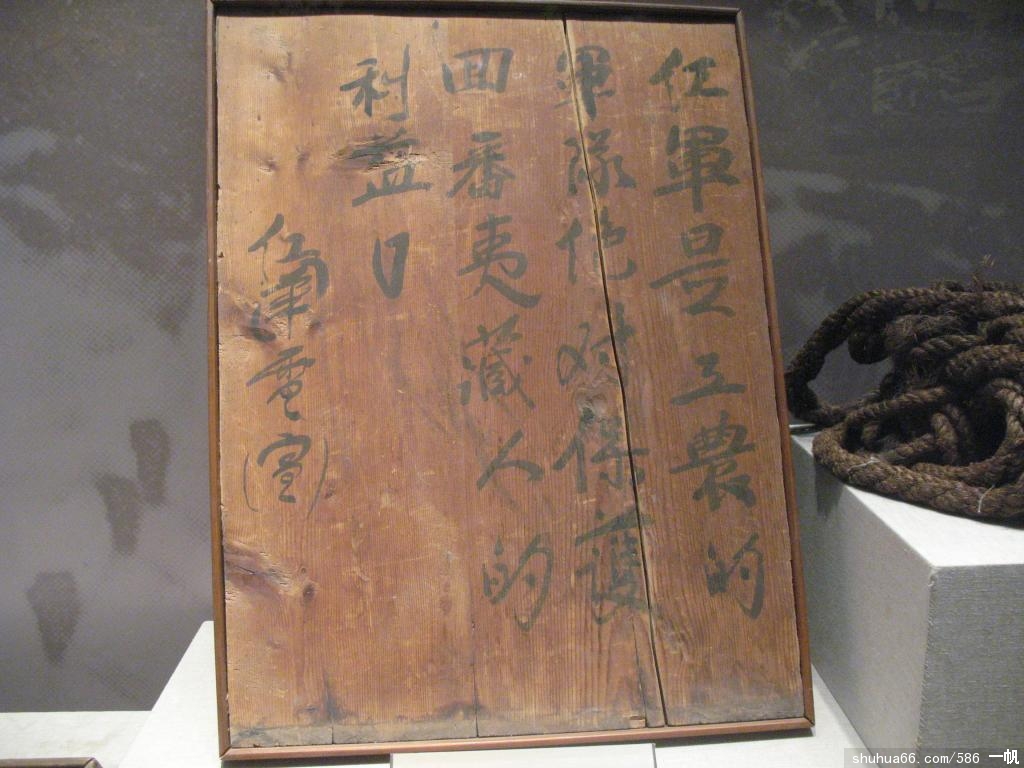 红軍是工農的
軍隊他对保護
回番夷藏人的
利益
红軍電(宣)
shuhua66.com/586 一帆